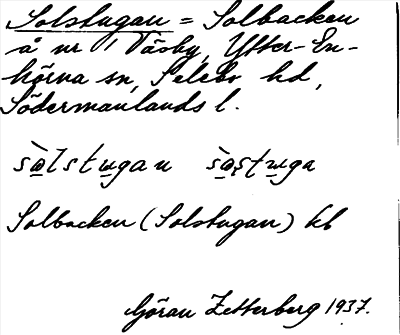 Solstugan = Solbacken
å nr 1 Väsby, Ytter-En-
hörna sn, Selebo hd,
Södermanlands l.
sὰlstugan sὰstuga
Solbacken (Solstugan) kl
Göran Zetterberg 1937.